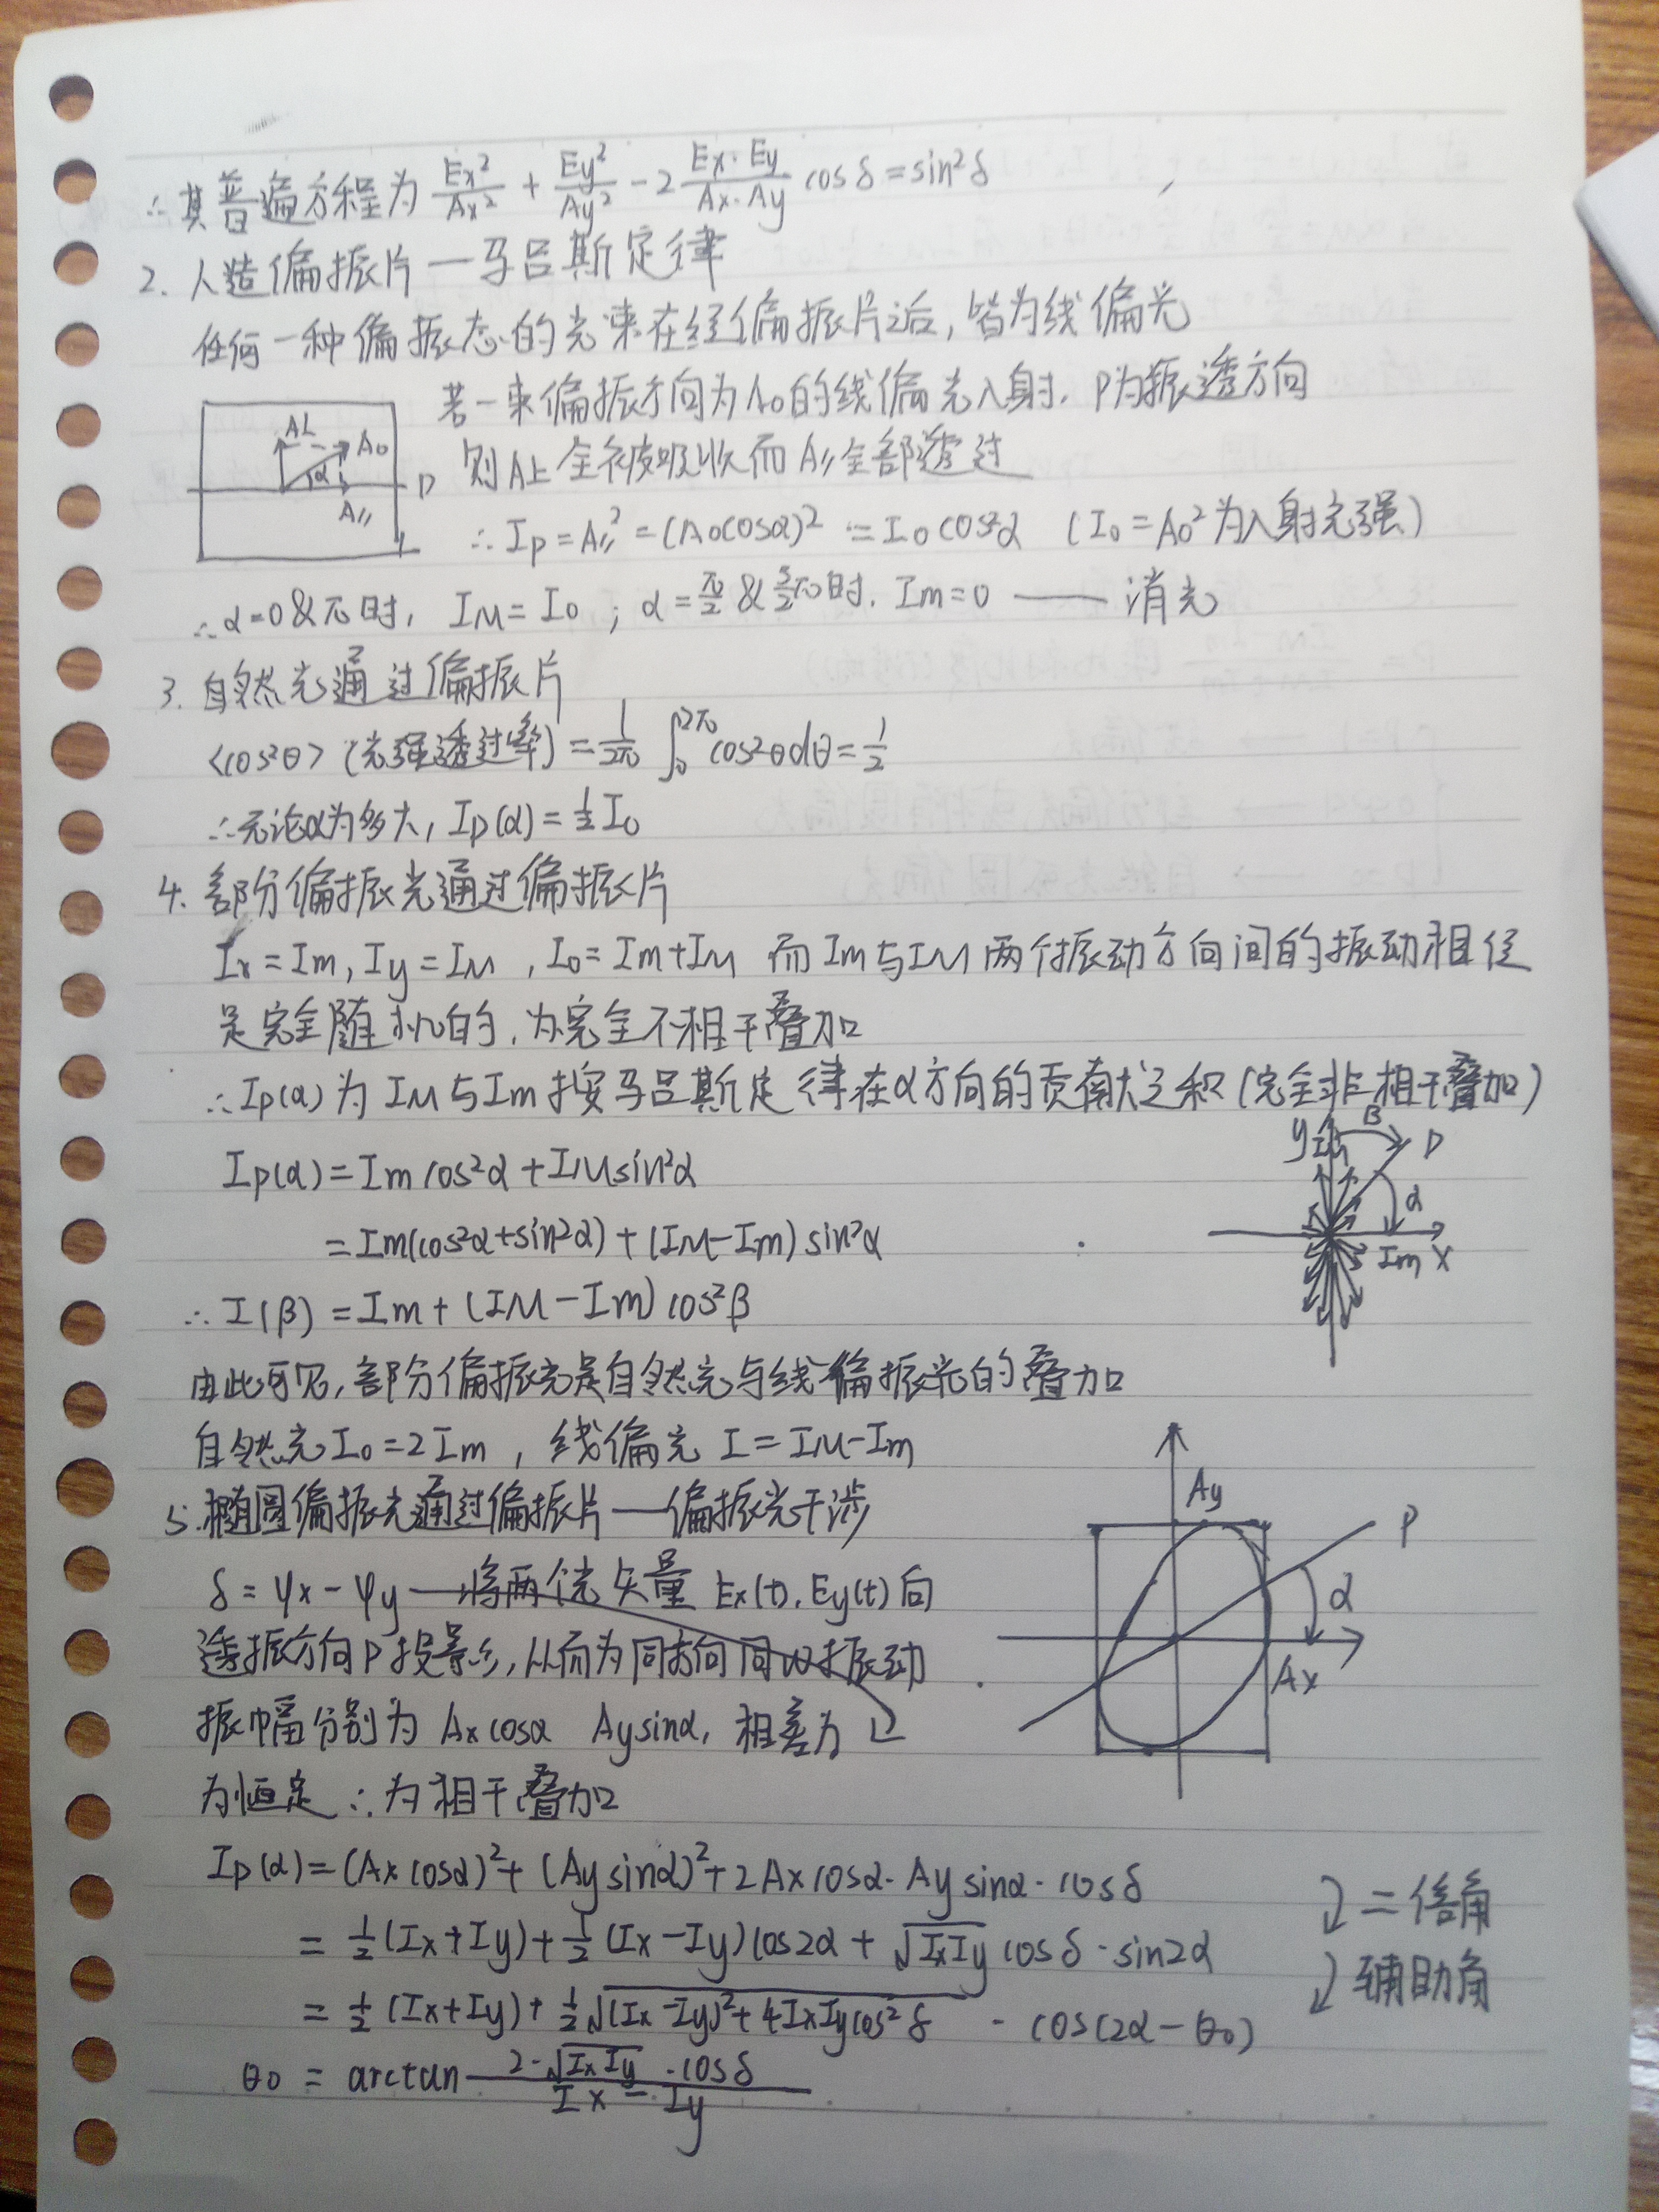 ∴其普遍方程为 Ex²/Ax² + Ey²/Ay² - 2 Ex·Ey/Ax·Ay cosδ = sin²δ
2. 人造偏振片—马吕斯定律
任何一种偏振态的光束在经偏振片之后,皆为线偏光
若一束偏振方向为A₀的线偏光入射. P为振透方向
则A⊥全被吸收而A∥全部透过
A⊥ A₀
α P
A∥
∴ Ip = A∥² = (A₀cosα)² = I₀cos²α (I₀ = A₀²为入射光强)
∴α=0&π时, IM = I₀ ; α = π/2 & 3/2π时. Im = 0 —— 消光
3. 自然光通过偏振片
<cos²θ> (光强透过率) = 1/2π ∫₀^2π cos²θdθ = 1/2
∴无论α为多大, Ip(α) = ½I₀
4. 部分偏振光通过偏振片
Ix = Im, Iy = IM , I₀ = Im+IM 而Im与IM两个振动方向间的振动相位
是完全随机的, 为完全不相干叠加
∴Ip(α)为IM与Im按马吕斯定律在α方向的贡献之和(完全非相干叠加)
Ip(α) = Im cos²α + IM sin²α
= Im(cos²α+sin²α) + (IM-Im) sin²α
y β P
α
Im X
∴ I(β) = Im + (IM-Im) cos²β
由此可见, 部分偏振光是自然光与线偏振光的叠加
自然光I₀ = 2Im , 线偏光 I = IM-Im
5. 椭圆偏振光通过偏振片——偏振光干涉
δ = φx - φy 将两个光矢量 Ex(t), Ey(t)向
透振方向P投影, 从而为同方向同ω振动
振幅分别为 Axcosα Aysinα, 相差为
为恒定 ∴为相干叠加
Ay
P
α
Ax
Ip(α) = (Ax cosα)² + (Ay sinα)² + 2Ax cosα·Ay sinα·cosδ
= ½(Ix+Iy) + ½(Ix-Iy)cos2α + √IxIy cosδ·sin2α
二倍角
= ½(Ix+Iy) + ½√(Ix-Iy)²+4IxIycos²δ · cos(2α-θ₀)
辅助角
θ₀ = arctan 2·√IxIy·cosδ / Ix-Iy